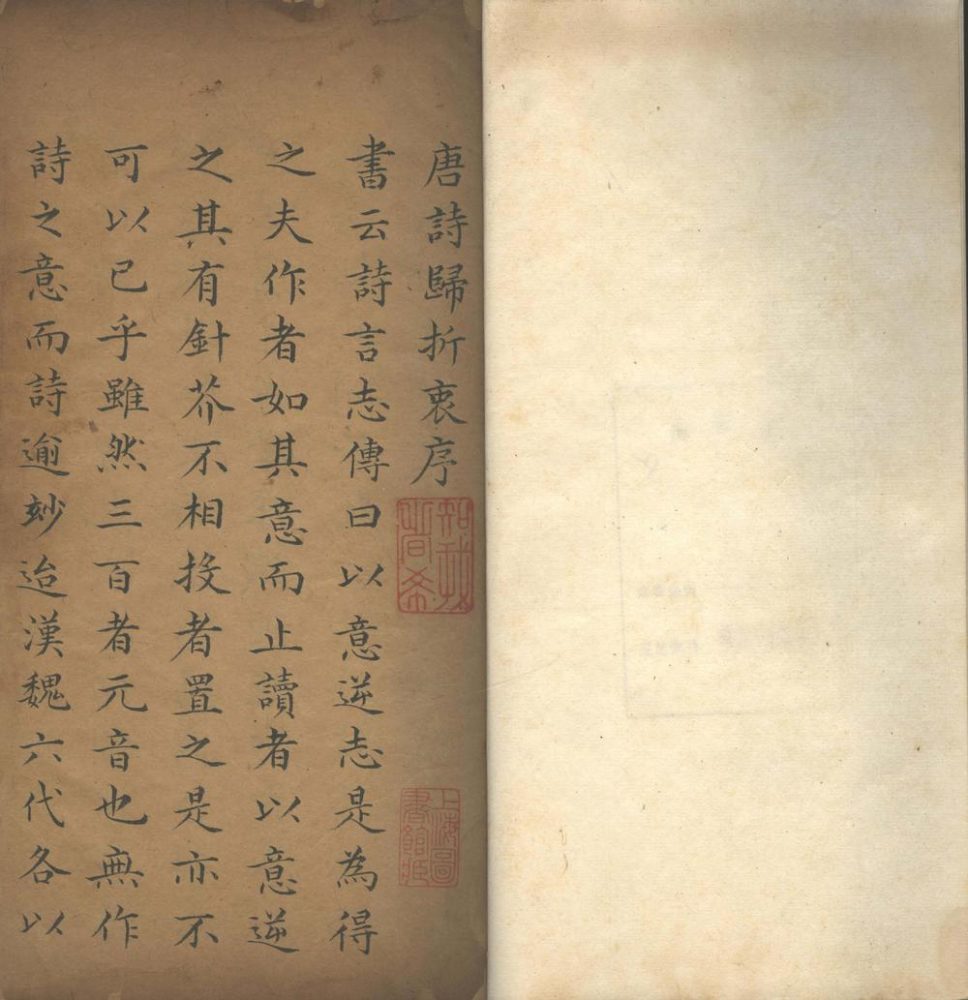 唐詩歸折衷序
書云詩言志傳曰以意逆志是為得
之夫作者如其意而止讀者以意逆
之其有針芥不相投者置之是亦不
可以已乎雖然三百者元音也無作
詩之意而詩逾妙迨漢魏六代各以
知我者希
上海圖書館藏